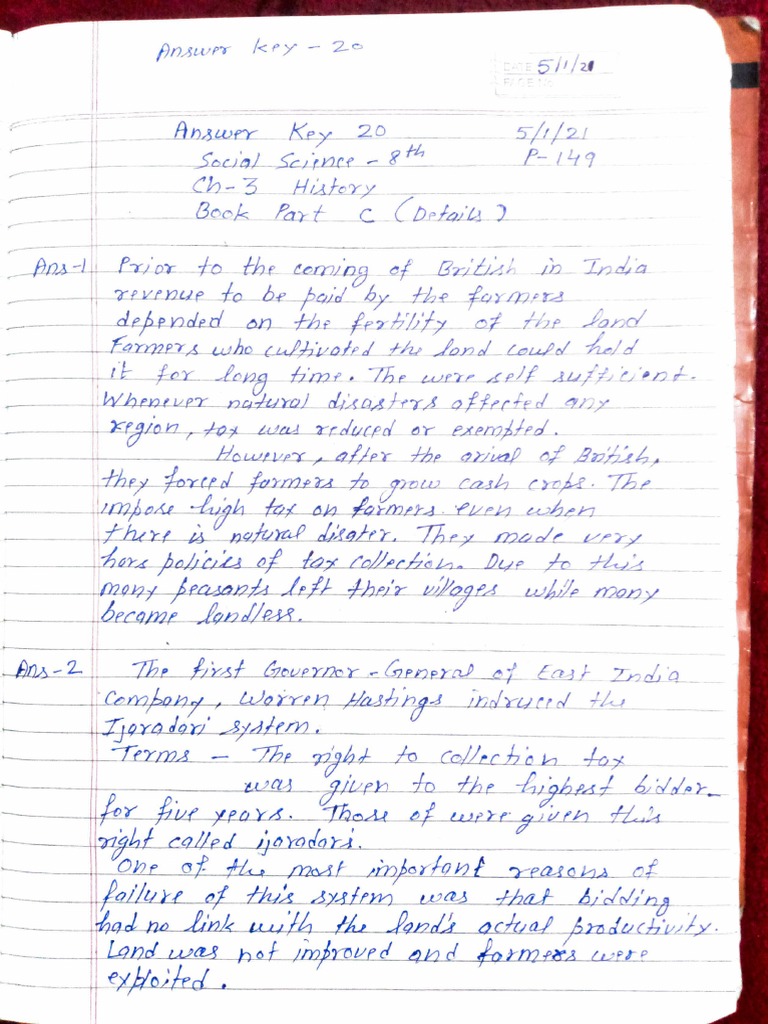 Answer Key - 20
DATE 5/1/21
PAGE No.
Answer Key 20 5/1/21
Social Science - 8th P-149
Ch-3 History
Book Part C (Details)
Ans-1 Prior to the coming of British in India
revenue to be paid by the farmers
depended on the fertility of the land
Farmers who cultivated the land could hold
it for long time. The were self sufficient.
Whenever natural disasters affected any
region, tax was reduced or exempted.
However, after the arival of British,
they forced farmers to grow cash crops. The
impose high tax on farmers even when
there is natural disater. They made very
hars policies of tax collection. Due to this
many peasants left their villages while many
became landless.
Ans-2 The first Governor-General of East India
Company, Warren Hastings indruced the
Ijaradari system.
Terms - The right to collection tax
was given to the highest bidder
for five years. Those of were given this
right called ijaradars.
One of the most important reasons of
failure of this system was that bidding
had no link with the land's actual productivity.
Land was not improved and farmers were
exploited.